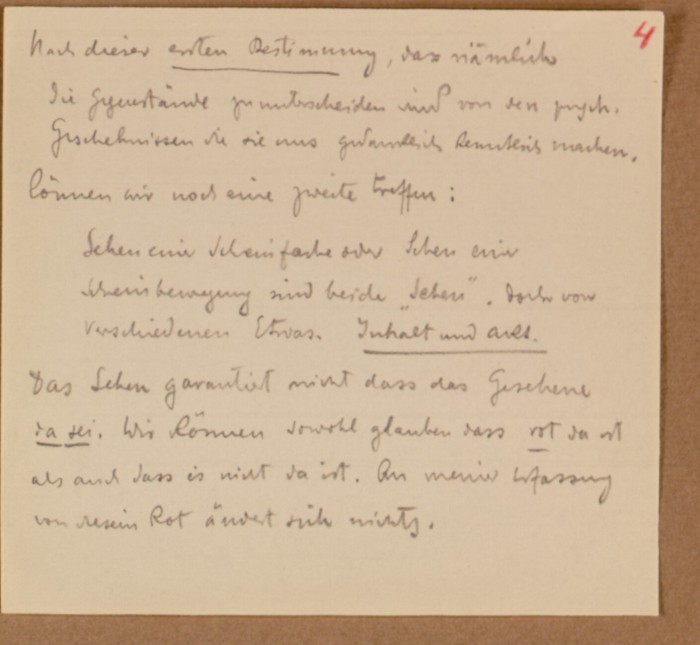 4
Nach dieser ersten Bestimmung, dass nämlich
die Gegenstände zu unterscheiden sind von den psych.
Geschehnissen die sie uns gedanklich kenntlich machen,
können wir noch eine zweite treffen:
Sehen einer Scheinfarbe oder Sehen einer
Scheinbewegung sind beide „Sehen“, doch von
verschiedenen Etwas. Inhalt und Akt.
Das Sehen garantiert nicht dass das Gesehene
da sei. Wir können sowohl glauben dass rot da ist
als auch dass es nicht da ist. An meiner Erfassung
von diesem Rot ändert sich nichts.